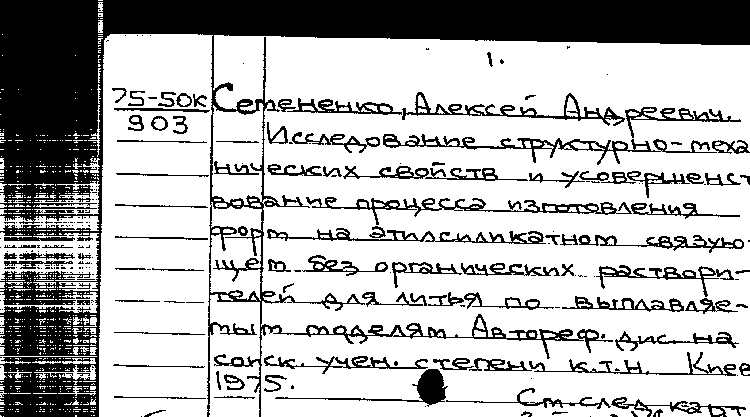 1.
75-50к Сетененко, Алексей Андреевич.
903 Исследование структурно-меха
нических свойств и усовершенст
вование процесса изготовления
форм на этилсиликатном связую-
щем без органических раствори-
телей для литья по выплавляе-
мым моделям. Автореф. дис. на
соиск. учен. степени к.т.н. Киев
1975.
См. след. карт